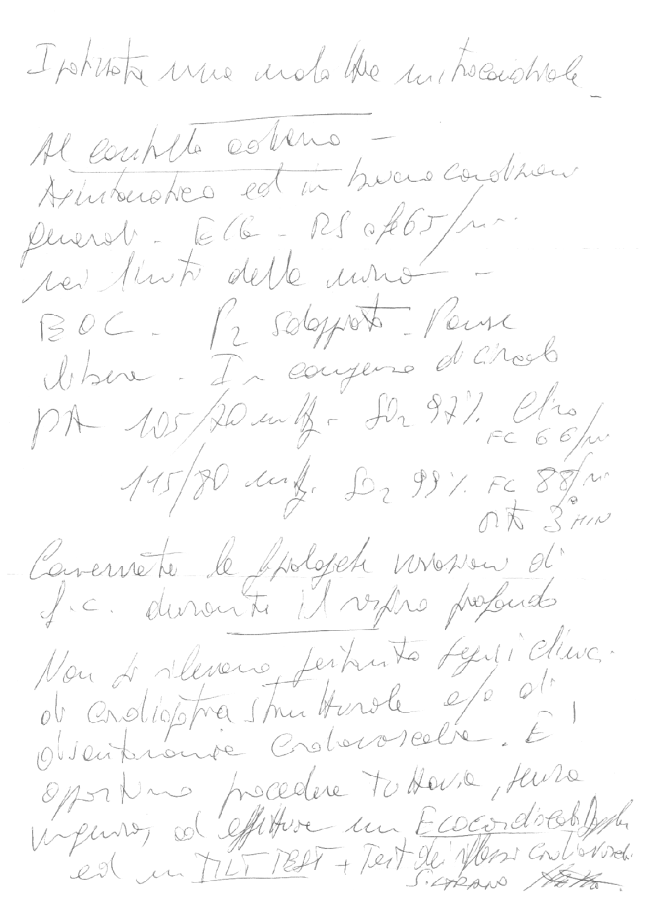 Ipotizzata una malattia mitocondriale -
Al controllo odierno -
Asintomatico ed in buone condizioni
generali - ECG - RS a fc 65/m.
nei limiti della norma -
BOC - P2 sdoppiato - Pause
libere - In compenso di circolo
PA 105/70 mmHg - SO2 97% Clino
FC 66/m
115/80 mmHg. SO2 99% FC 88/m
orto 3° MIN
Conservate le fisiologiche variazioni di
f.c. durante il respiro profondo
Non si rilevano pertanto segni clinici
di cardiopatia strutturale e/o di
disautonomia cardiovascolare. E'
opportuno procedere tuttavia, senza
urgenza, ad effettuare un Ecocardiocolordoppler
ed un TILT TEST + Test dei riflessi cardiovascolari